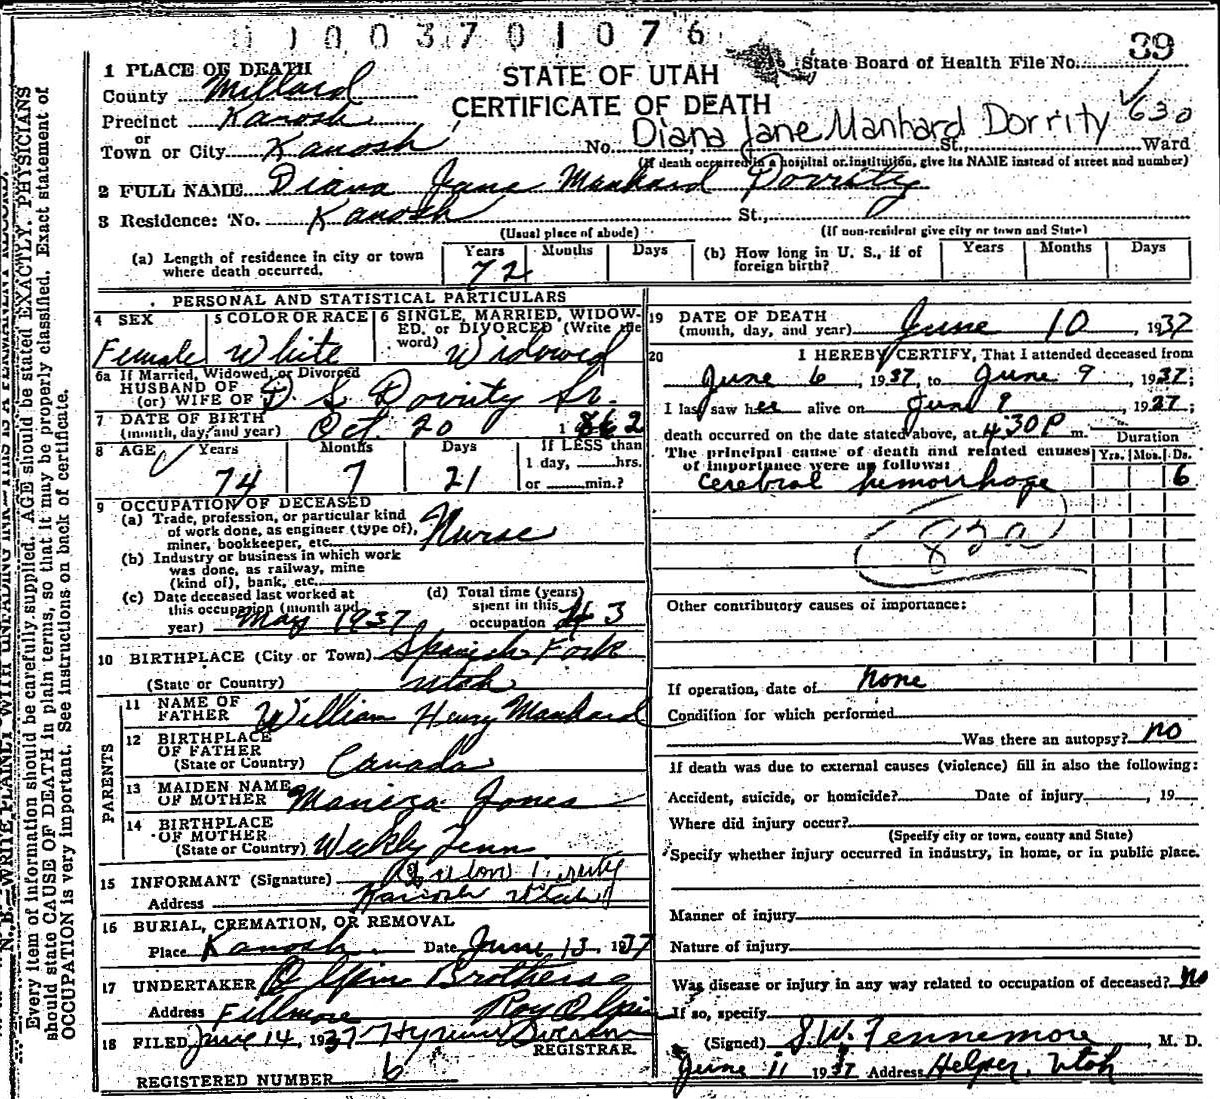 1 0 0 3 7 0 1 0 7 6
39
State Board of Health File No.
STATE OF UTAH
CERTIFICATE OF DEATH
1 PLACE OF DEATH
County Millard
Precinct Kanosh
or
Town or City Kanosh No. St., Ward
Diana Jane Manhard Dorrity 630
(If death occurred in a hospital or institution, give its NAME instead of street and number)
2 FULL NAME Diana Jane Manhard Dorrity
3 Residence: No. Kanosh St.,
(Usual place of abode) (If non-resident give city or town and State)
(a) Length of residence in city or town where death occurred. Years 72 Months Days
(b) How long in U. S., if of foreign birth? Years Months Days
PERSONAL AND STATISTICAL PARTICULARS
4 SEX Female
5 COLOR OR RACE White
6 SINGLE, MARRIED, WIDOWED, or DIVORCED (Write the word) Widowed
6a If Married, Widowed, or Divorced
HUSBAND OF
(or) WIFE OF D S Dorrity Sr.
7 DATE OF BIRTH
(month, day, and year) Oct. 20 1862
8 AGE Years 74 Months 7 Days 21
If LESS than
1 day, hrs.
or min.?
9 OCCUPATION OF DECEASED
(a) Trade, profession, or particular kind
of work done, as engineer (type of),
miner, bookkeeper, etc. Nurse
(b) Industry or business in which work
was done, as railway, mine
(kind of), bank, etc.
(c) Date deceased last worked at
this occupation (month and
year) May 1937
(d) Total time (years)
spent in this
occupation 43
10 BIRTHPLACE (City or Town) Spanish Fork
(State or Country) Utah
PARENTS
11 NAME OF
FATHER William Henry Manhard
12 BIRTHPLACE
OF FATHER
(State or Country) Canada
13 MAIDEN NAME
OF MOTHER Jones
14 BIRTHPLACE
OF MOTHER
(State or Country) Weekly Tenn
15 INFORMANT (Signature)
Address Kanosh Utah
16 BURIAL, CREMATION, OR REMOVAL
Place Kanosh Date June 13 1937
17 UNDERTAKER Olpin Brothers
Address Fillmore Roy Olpin
18 FILED June 14, 1937 Hyrum
REGISTRAR.
REGISTERED NUMBER 6
19 DATE OF DEATH
(month, day, and year) June 10, 1937
20 I HEREBY CERTIFY, That I attended deceased from
June 6, 1937, to June 9, 1937;
I last saw her alive on June 9, 1937;
death occurred on the date stated above, at 4:30 P m.
The principal cause of death and related causes
of importance were as follows:
Duration
Yrs. Mos. Ds.
Cerebral hemorrhage 6
82a
Other contributory causes of importance:
If operation, date of none
Condition for which performed
Was there an autopsy? no
If death was due to external causes (violence) fill in also the following:
Accident, suicide, or homicide? Date of injury, 19
Where did injury occur?
(Specify city or town, county and State)
Specify whether injury occurred in industry, in home, or in public place.
Manner of injury
Nature of injury
Was disease or injury in any way related to occupation of deceased? no
If so, specify
(Signed) J.W. Fennemore, M. D.
June 11 1937 Address Helper, Utah
N. B.—WRITE PLAINLY, WITH UNFADING INK—THIS IS A PERMANENT RECORD.
Every item of information should be carefully supplied. AGE should be stated EXACTLY. PHYSICIANS
should state CAUSE OF DEATH in plain terms, so that it may be properly classified. Exact statement of
OCCUPATION is very important. See instructions on back of certificate.